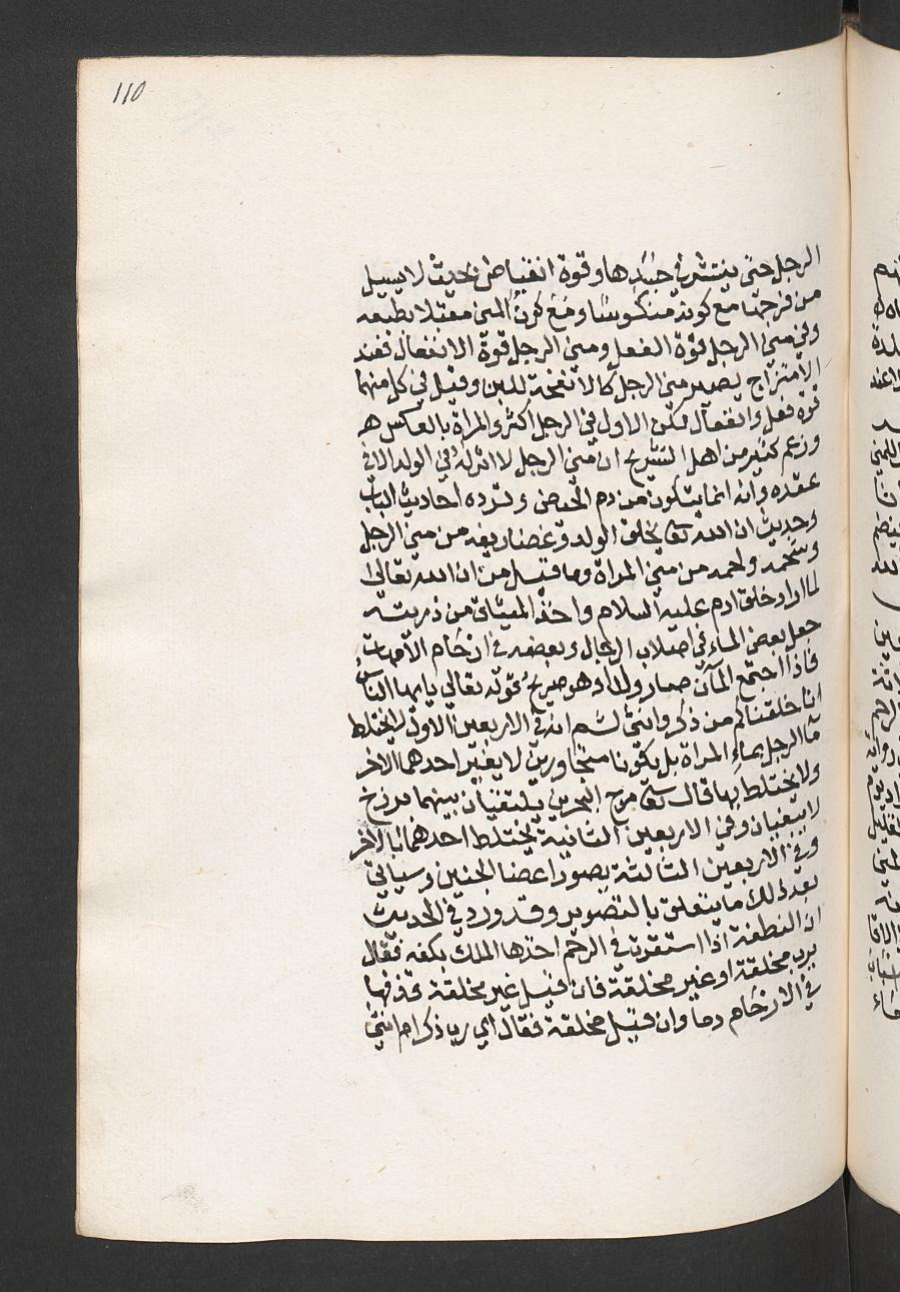 110
الرجل حتى ينتشر في جسدها وقوة انقباض بحيث لا يسيل
من فرجها مع كونه منكوسًا ومع كون المني معتلا بطبعه
وفي مني الرجل قوة الفعل ومني الرجل قوة الانفعال فعند
الامتزاج يصير مني الرجل كالانفحة للبن وقيل في كل منهما
قوة فعل وانفعال لكن الاول في الرجل اكثر والمراة بالعكس ه
وزعم كثير من اهل التشريح ان مني الرجل لا اثر له في الولد الا في
عقده وانه انما يتكون من دم الحيض وترده احاديث الباب
وحديث ان الله تعالى يخلق الولد وعضاريفه من مني الرجل
وشحمه ولحمه من مني المراة وما قيل من ان الله تعالى
لما اراد خلق ادم عليه السلام واخذ الميثاق من ذريته
جعل بعض الماء في اصلاب الرجال وبعضه في ارحام الامهات
فاذا اجتمع المآن صار ولدا وهو صريح قوله تعالى يايها الناس
انا خلقناكم من ذكر وانثى ثم انه في الاربعين الاول لا يختلط
مآ الرجل بماء المراة بل يكونا متجاورين لا يغير احدهما الاخر
ولا يختلط بها قال تعالى مرج البحرين يلتقيان بينهما برزخ
لا يبغيان وفي الاربعين الثانية يختلط احدهما بالاخر
وفي الاربعين الثالثة يصور اعضا الجنين وسياتي
بعد ذلك ما يتعلق بالتصوير وقد ورد في الحديث
ان النطفة اذا استقرت في الرحم اخذها الملك بكفه فقال
يرب مخلقة او غير مخلقة فان قيل غير مخلقة قذفها
في الارحام دما وان قيل مخلقة فقال اي رب ذكر ام انثى